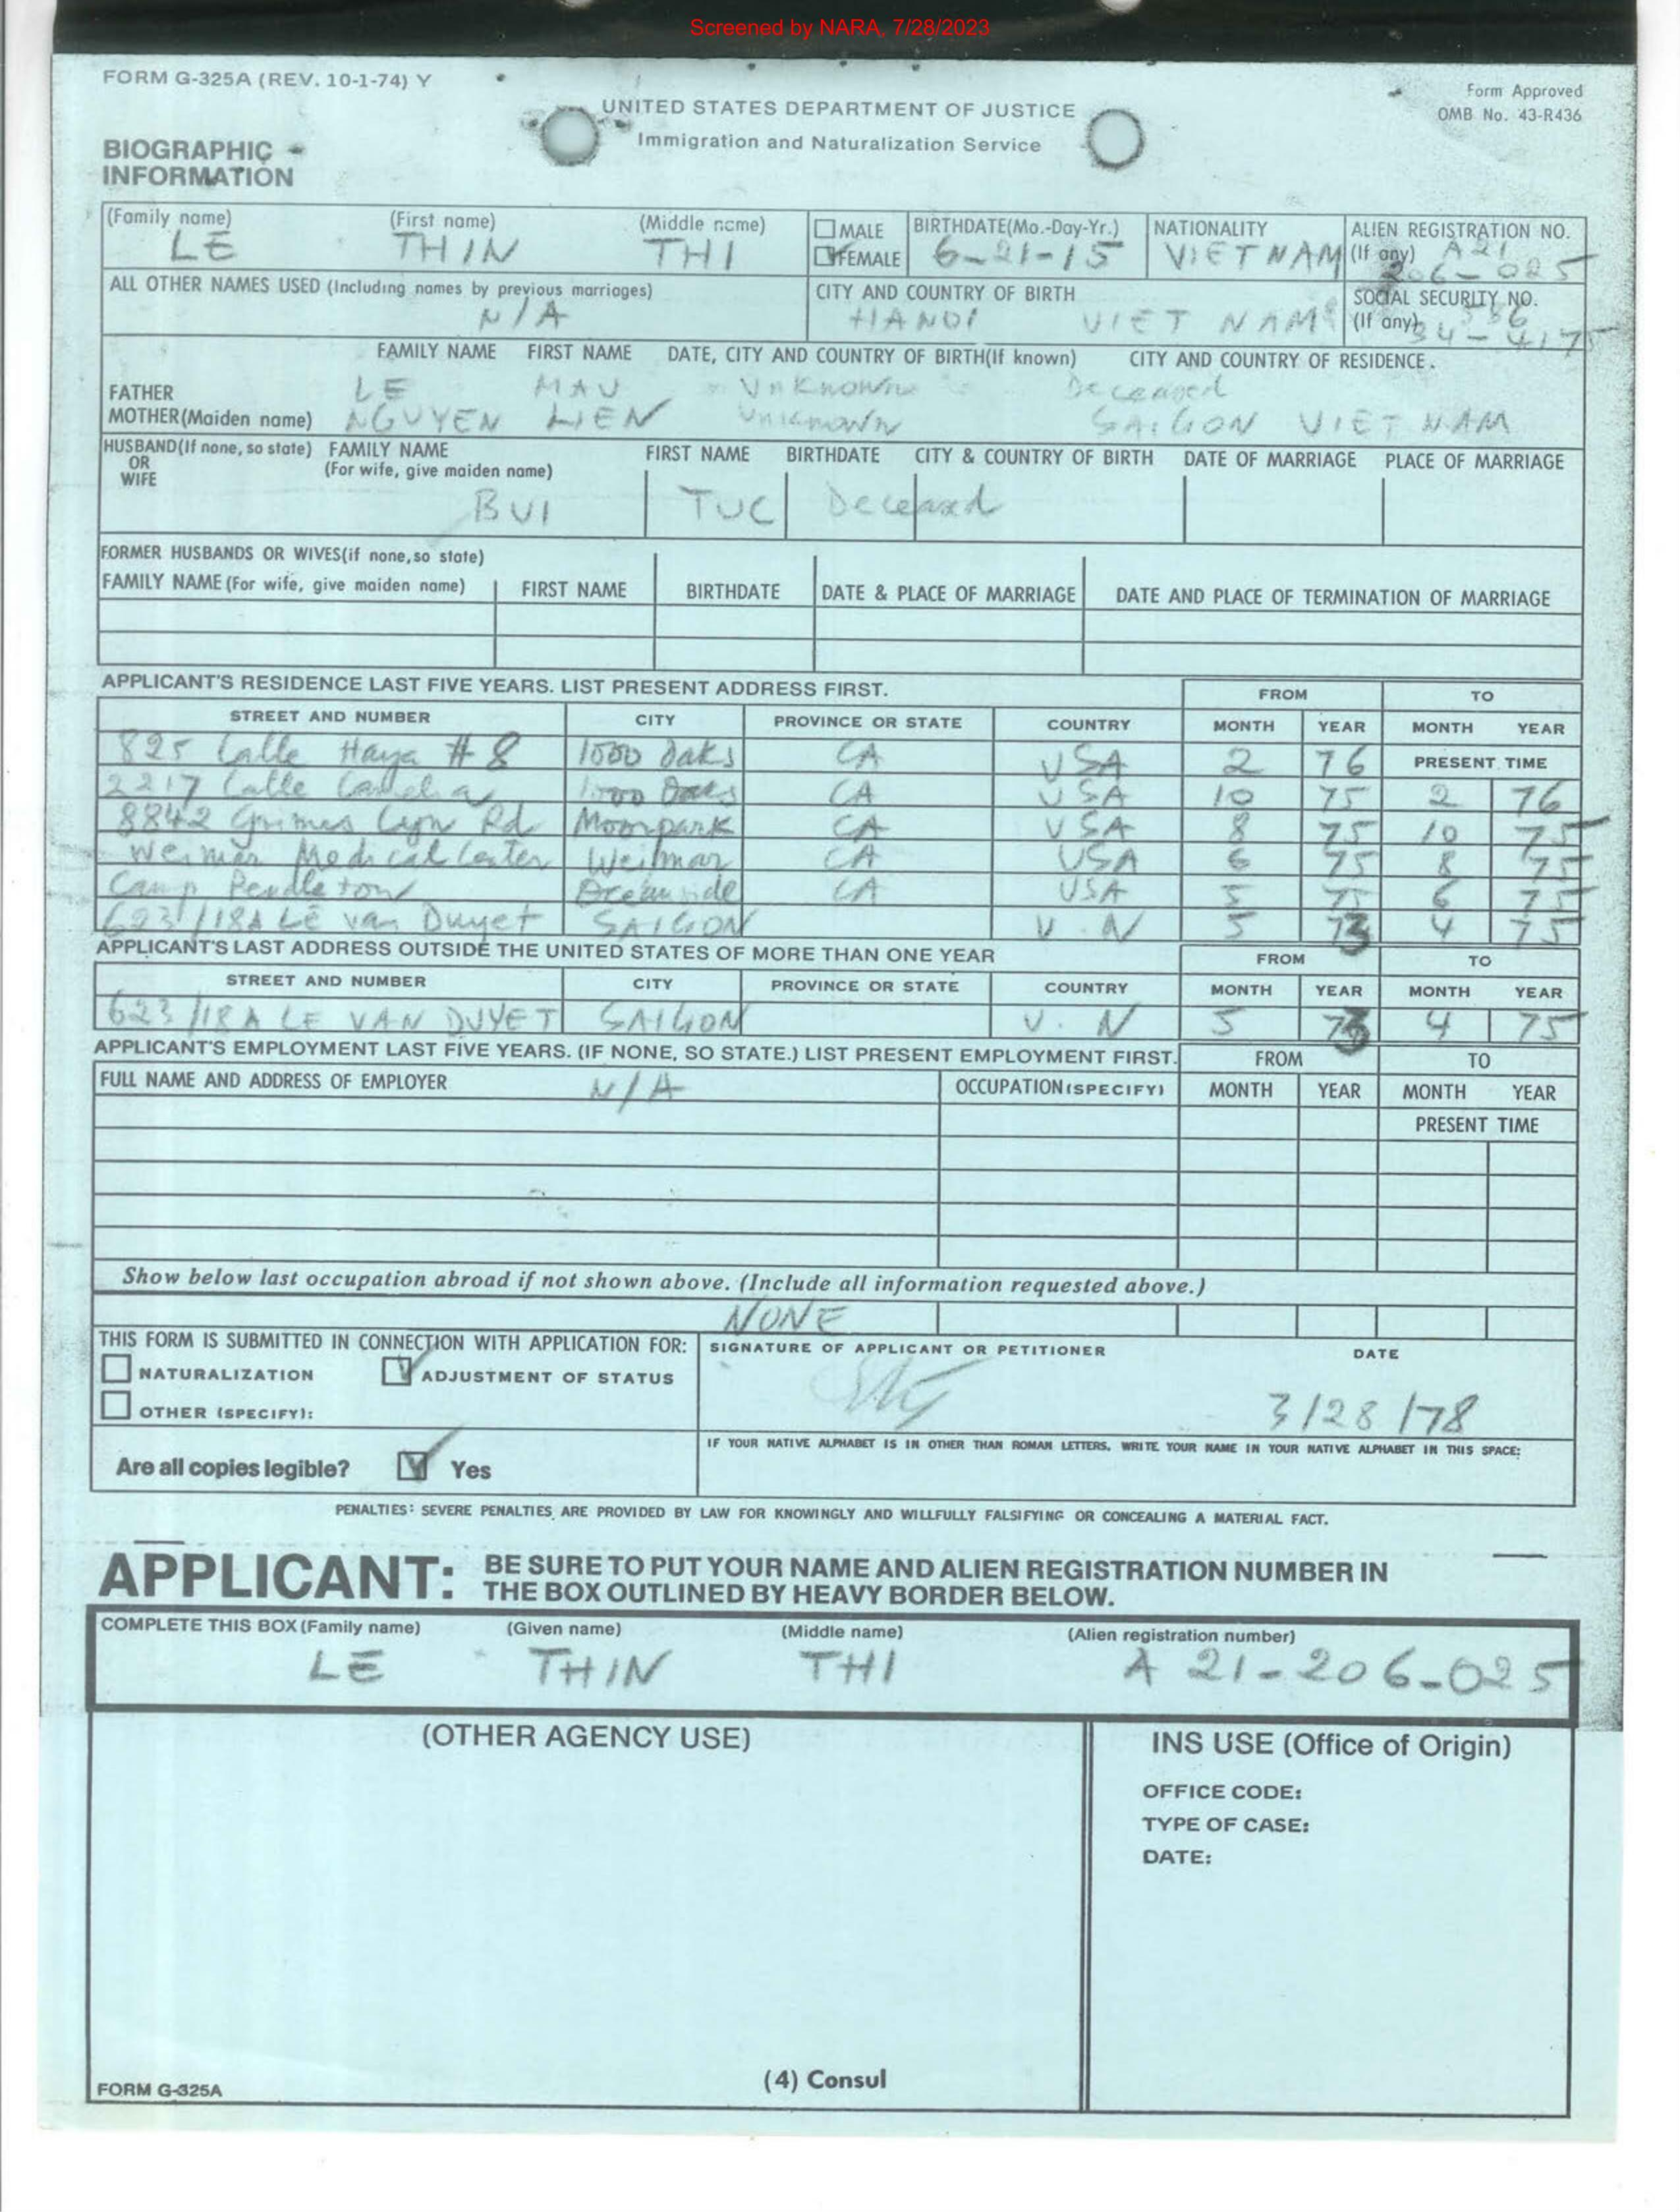 Screened by NARA, 7/28/2023
FORM G-325A (REV. 10-1-74) Y
Form Approved
OMB No. 43-R436
UNITED STATES DEPARTMENT OF JUSTICE
Immigration and Naturalization Service
BIOGRAPHIC
INFORMATION
(Family name) (First name) (Middle name) MALE BIRTHDATE(Mo.-Day-Yr.) NATIONALITY ALIEN REGISTRATION NO.
LE THIN THI FEMALE 6-21-15 VIET NAM (If any) A21
206-025
ALL OTHER NAMES USED (Including names by previous marriages) CITY AND COUNTRY OF BIRTH SOCIAL SECURITY NO.
N/A HANOI VIET NAM (If any) 586
34-4175
FAMILY NAME FIRST NAME DATE, CITY AND COUNTRY OF BIRTH(If known) CITY AND COUNTRY OF RESIDENCE.
FATHER LE MAU Unknown Deceased
MOTHER(Maiden name) NGUYEN LIEN Unknown SAIGON VIET NAM
HUSBAND(If none, so state) FAMILY NAME FIRST NAME BIRTHDATE CITY & COUNTRY OF BIRTH DATE OF MARRIAGE PLACE OF MARRIAGE
OR (For wife, give maiden name)
WIFE
BUI TUC Deceased
FORMER HUSBANDS OR WIVES(if none,so state)
FAMILY NAME (For wife, give maiden name) FIRST NAME BIRTHDATE DATE & PLACE OF MARRIAGE DATE AND PLACE OF TERMINATION OF MARRIAGE
APPLICANT'S RESIDENCE LAST FIVE YEARS. LIST PRESENT ADDRESS FIRST. FROM TO
STREET AND NUMBER CITY PROVINCE OR STATE COUNTRY MONTH YEAR MONTH YEAR
825 Calle Haya # 8 1000 Oaks CA USA 2 76 PRESENT TIME
2217 Calle 1000 Oaks CA USA 10 75 2 76
8842 Grimes Cyn Rd Moorpark CA USA 8 75 10 75
Weimar Medical Center Weimar CA USA 6 75 8 75
Camp Pendleton Oceanside CA USA 5 75 6 75
623/18A Lê van Duyet SAIGON V.N 5 73 4 75
APPLICANT'S LAST ADDRESS OUTSIDE THE UNITED STATES OF MORE THAN ONE YEAR FROM TO
STREET AND NUMBER CITY PROVINCE OR STATE COUNTRY MONTH YEAR MONTH YEAR
623/18A LE VAN DUYET SAIGON V.N 5 73 4 75
APPLICANT'S EMPLOYMENT LAST FIVE YEARS. (IF NONE, SO STATE.) LIST PRESENT EMPLOYMENT FIRST. FROM TO
FULL NAME AND ADDRESS OF EMPLOYER N/A OCCUPATION(SPECIFY) MONTH YEAR MONTH YEAR
PRESENT TIME
Show below last occupation abroad if not shown above. (Include all information requested above.)
NONE
THIS FORM IS SUBMITTED IN CONNECTION WITH APPLICATION FOR: SIGNATURE OF APPLICANT OR PETITIONER DATE
NATURALIZATION ADJUSTMENT OF STATUS
OTHER (SPECIFY): 3/28/78
IF YOUR NATIVE ALPHABET IS IN OTHER THAN ROMAN LETTERS, WRITE YOUR NAME IN YOUR NATIVE ALPHABET IN THIS SPACE:
Are all copies legible? Yes
PENALTIES: SEVERE PENALTIES ARE PROVIDED BY LAW FOR KNOWINGLY AND WILLFULLY FALSIFYING OR CONCEALING A MATERIAL FACT.
APPLICANT: BE SURE TO PUT YOUR NAME AND ALIEN REGISTRATION NUMBER IN
THE BOX OUTLINED BY HEAVY BORDER BELOW.
COMPLETE THIS BOX (Family name) (Given name) (Middle name) (Alien registration number)
LE THIN THI A 21-206-025
(OTHER AGENCY USE) INS USE (Office of Origin)
OFFICE CODE:
TYPE OF CASE:
DATE:
(4) Consul
FORM G-325A